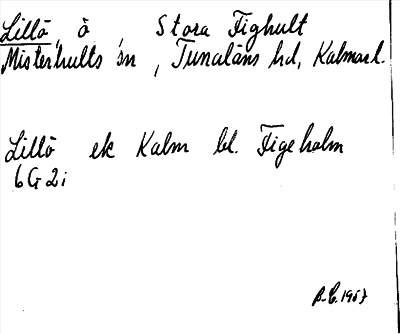 Lillö, ö, Stora Fighult
Misterhults sn, Tunaläns hd, Kalmar l.
Lillö ek Kalm bl. Figeholm
6G2i
1967